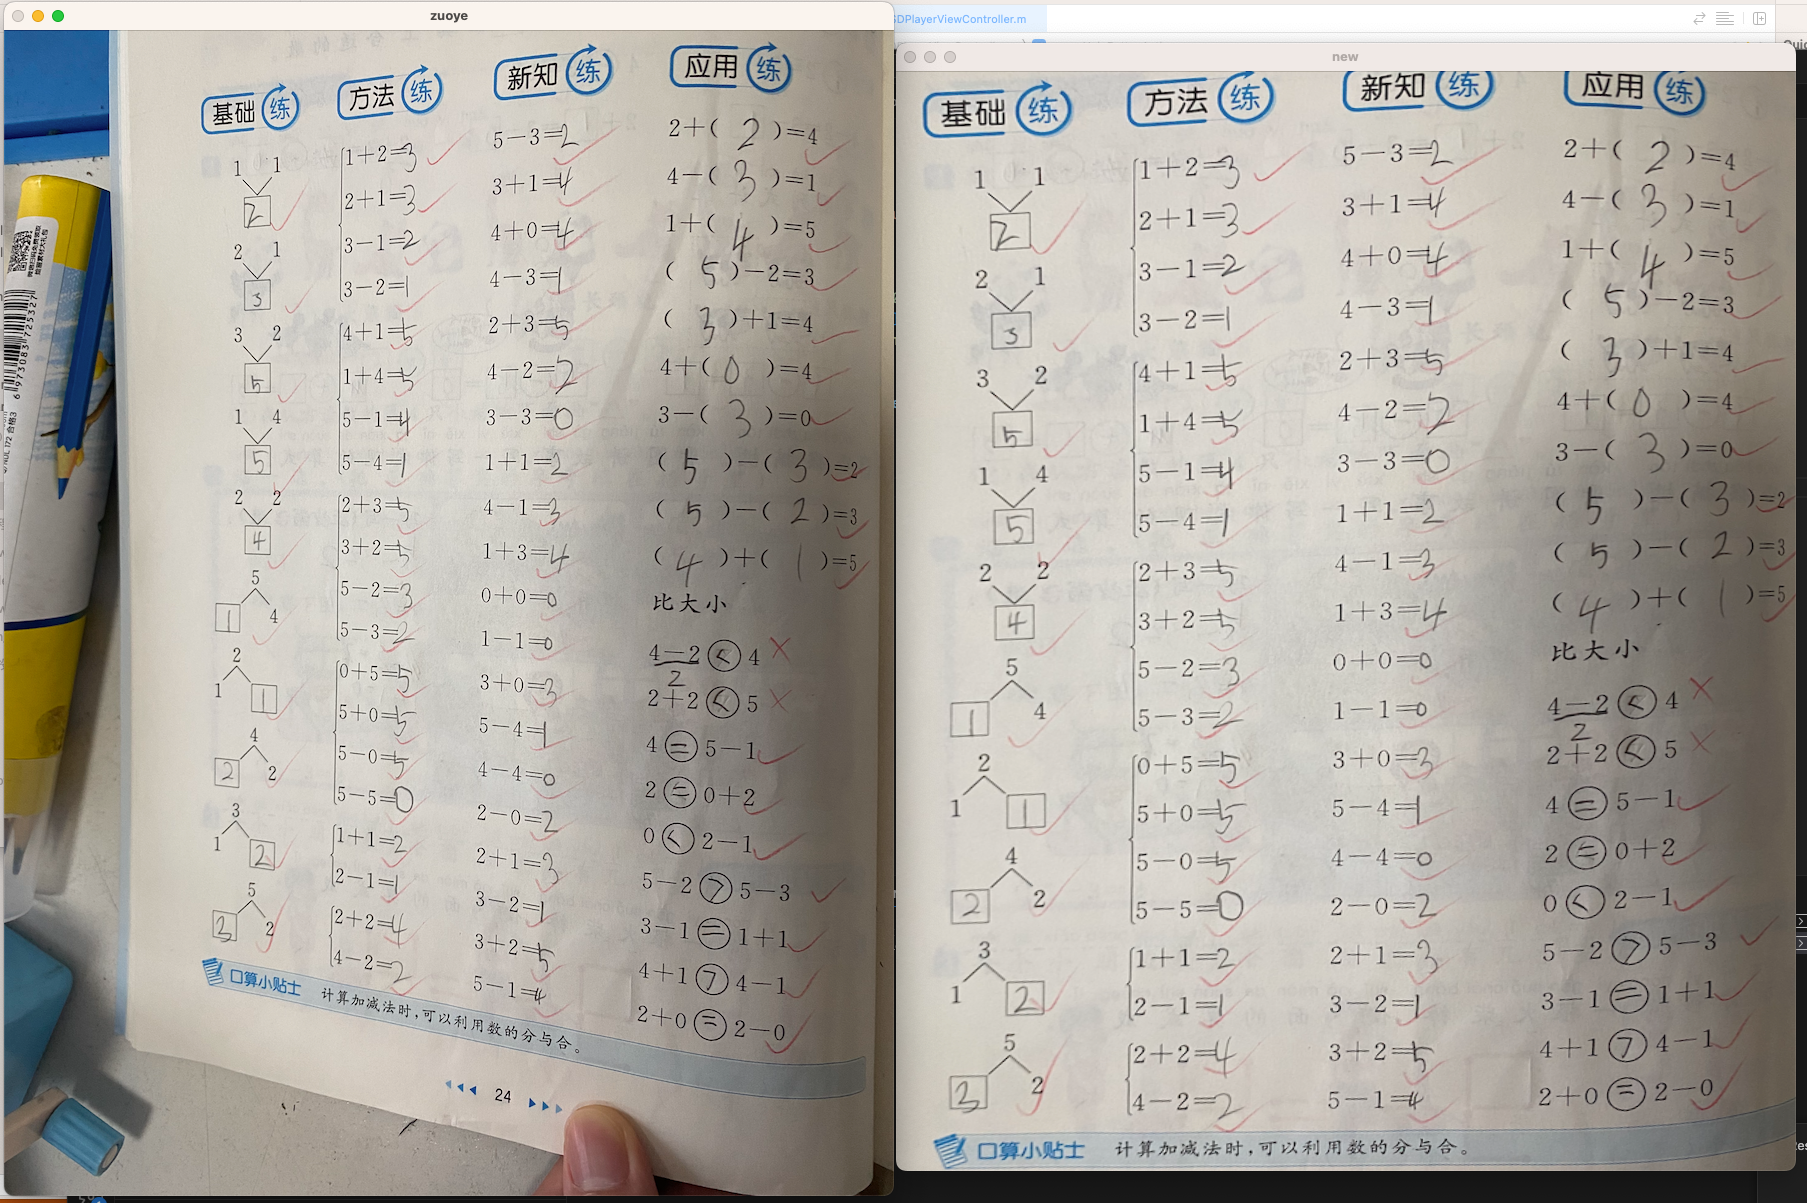 zuoye
基础练
1 1
2
2 1
3
3 2
5
1 4
5
2 2
4
5
1 4
2
1 1
4
2 2
3
1 2
5
3 2
方法练
1+2=3
2+1=3
3-1=2
3-2=1
4+1=5
1+4=5
5-1=4
5-4=1
2+3=5
3+2=5
5-2=3
5-3=2
0+5=5
5+0=5
5-0=5
5-5=0
1+1=2
2-1=1
2+2=4
4-2=2
新知练
5-3=2
3+1=4
4+0=4
4-3=1
2+3=5
4-2=2
3-3=0
1+1=2
4-1=3
1+3=4
0+0=0
1-1=0
3+0=3
5-4=1
4-4=0
2-0=2
2+1=3
3-2=1
3+2=5
5-1=4
应用练
2+( 2 )=4
4-( 3 )=1
1+( 4 )=5
( 5 )-2=3
( 3 )+1=4
4+( 0 )=4
3-( 3 )=0
( 5 )-( 3 )=2
( 5 )-( 2 )=3
( 4 )+( 1 )=5
比大小
4-2<4
2
2+2<5
4=5-1
2=0+2
0<2-1
5-2>5-3
3-1=1+1
4+1>4-1
2+0=2-0
口算小贴士 计算加减法时,可以利用数的分与合。
24
6973083725327
DPlayerViewController.m
new
基础练
1 1
2
2 1
3
3 2
5
1 4
5
2 2
4
5
1 4
2
1 1
4
2 2
3
1 2
5
3 2
方法练
1+2=3
2+1=3
3-1=2
3-2=1
4+1=5
1+4=5
5-1=4
5-4=1
2+3=5
3+2=5
5-2=3
5-3=2
0+5=5
5+0=5
5-0=5
5-5=0
1+1=2
2-1=1
2+2=4
4-2=2
新知练
5-3=2
3+1=4
4+0=4
4-3=1
2+3=5
4-2=2
3-3=0
1+1=2
4-1=3
1+3=4
0+0=0
1-1=0
3+0=3
5-4=1
4-4=0
2-0=2
2+1=3
3-2=1
3+2=5
5-1=4
应用练
2+( 2 )=4
4-( 3 )=1
1+( 4 )=5
( 5 )-2=3
( 3 )+1=4
4+( 0 )=4
3-( 3 )=0
( 5 )-( 3 )=2
( 5 )-( 2 )=3
( 4 )+( 1 )=5
比大小
4-2<4
2
2+2<5
4=5-1
2=0+2
0<2-1
5-2>5-3
3-1=1+1
4+1>4-1
2+0=2-0
口算小贴士 计算加减法时,可以利用数的分与合。